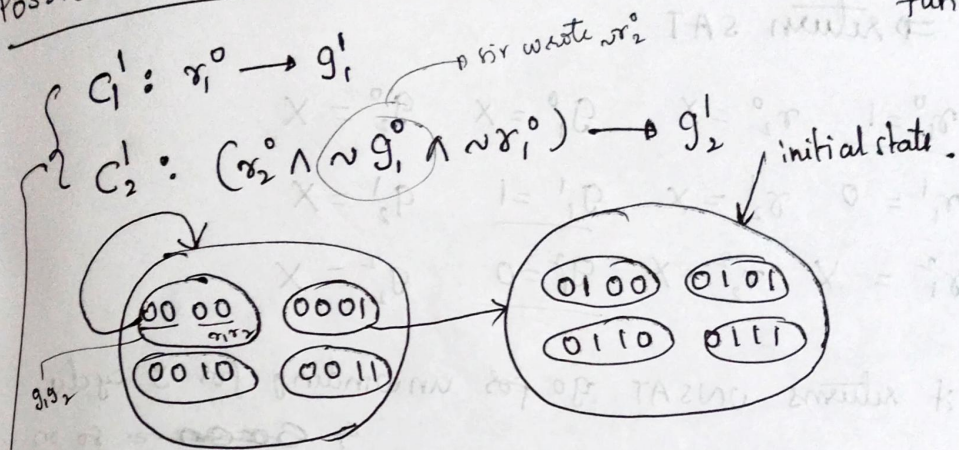 C₁¹ : r₁⁰ → g₁¹
sir wrote ~r₂⁰
C₂¹ : (r₂⁰ ∧ ~g₁⁰ ∧ ~r₁⁰) → g₂¹
initial state.
00 00 0001
r₁r₂
0010 0011
g₁g₂
0100 0101
0110 0111